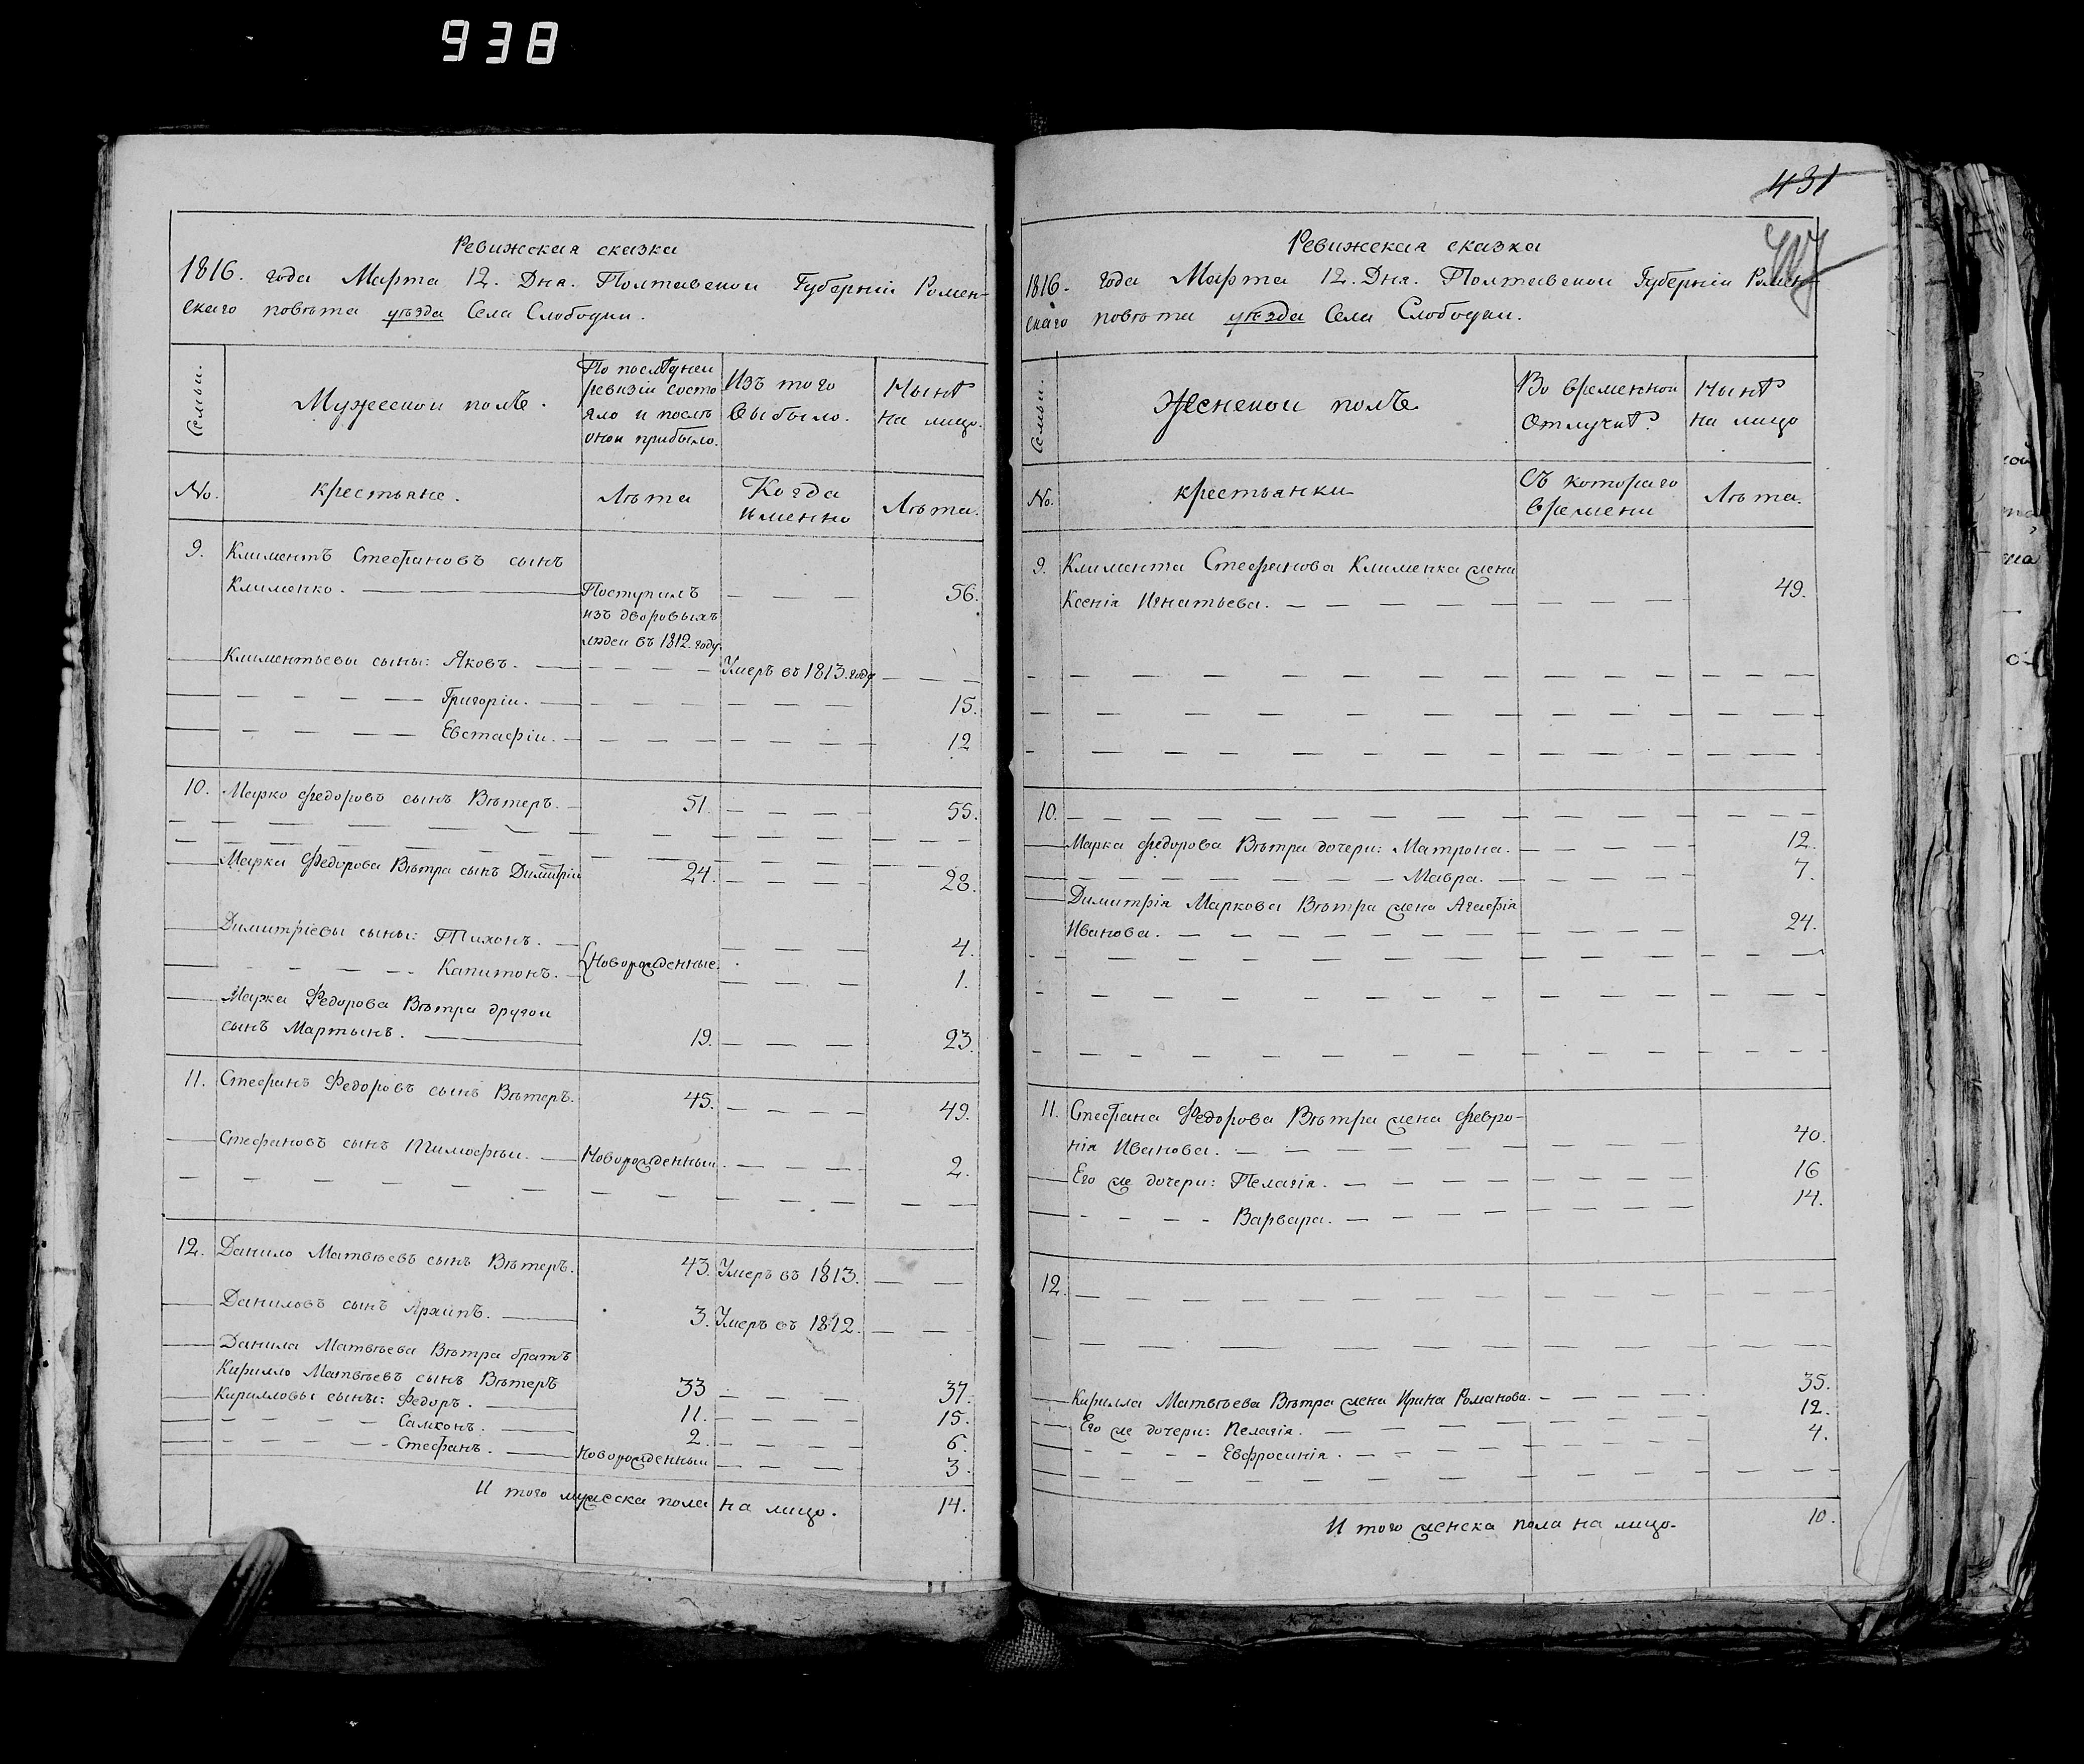 938
Ревижская сказка
1816. года Марта 12. Дня. Полтавской Губерніи Ромен-
скаго повѣта уѣзда Села Слободки.
Семьи.
Мужескои полъ.
По послѣднеи
ревизіи состо
яло и послѣ
онои прибыло.
Изъ того
выбыло.
Нынѣ
на лицо.
No.
крестьяне.
Лѣта
Когда
именно
Лѣта.
9. Климентъ Стефановъ сынъ
Клименко. Поступилъ 56.
изъ дворовыхъ
людеи въ 1812. году.
Климентьевы сыны: Яковъ. Умеръ въ 1813. году
Григоріи. 15.
Евстафіи. 12
10. Марко Федоровъ сынъ Вѣтеръ. 51. 55.
Марка Федорова Вѣтра сынъ Димитріи 24. 28.
Димитріевы сыны: Тихонъ. 4.
Новорожденные.
Капитонъ. 1.
Марка Федорова Вѣтра другои
сынъ Мартынъ. 19. 23.
11. Стефанъ Федоровъ сынъ Вѣтеръ. 45. 49.
Стефановъ сынъ Тимофеи. Новорожденныи. 2.
12. Данило Матвѣевъ сынъ Вѣтеръ. 43. Умеръ въ 1813.
Даниловъ сынъ Архипъ. 3. Умеръ въ 1812.
Данила Матвѣева Вѣтра братъ
Кирилло Матвѣевъ сынъ Вѣтеръ 33 37.
Кирилловы сыны: Федоръ. 11. 15.
Самсонъ. 2. 6.
Стефанъ. Новорожденныи 3.
И того мужеска пола на лицо. 14.
431
Ревижская сказка
1816. года Марта 12. Дня. Полтавской Губерніи Ромен-
скаго повѣта уѣзда Села Слободки.
Семьи.
Женскои полъ.
Во временнои
отлучкѣ.
Нынѣ
на лицо
No.
крестьянки
Съ котораго
времени
Лѣта.
9. Климента Стефанова Клименка жена
Ксенія Игнатьева. 49.
10.
Марка Федорова Вѣтра дочери: Матрона. 12.
Мавра. 7.
Димитрія Маркова Вѣтра жена Агафія
Иванова. 24.
11. Стефана Федорова Вѣтра жена Февро-
нія Иванова. 40.
Его же дочери: Пелагія. 16
Варвара. 14.
12.
Кирилла Матвѣева Вѣтра жена Ирина Романова. 35.
Его же дочери: Пелагія. 12.
Евфросинія. 4.
И того женска пола на лицо. 10.